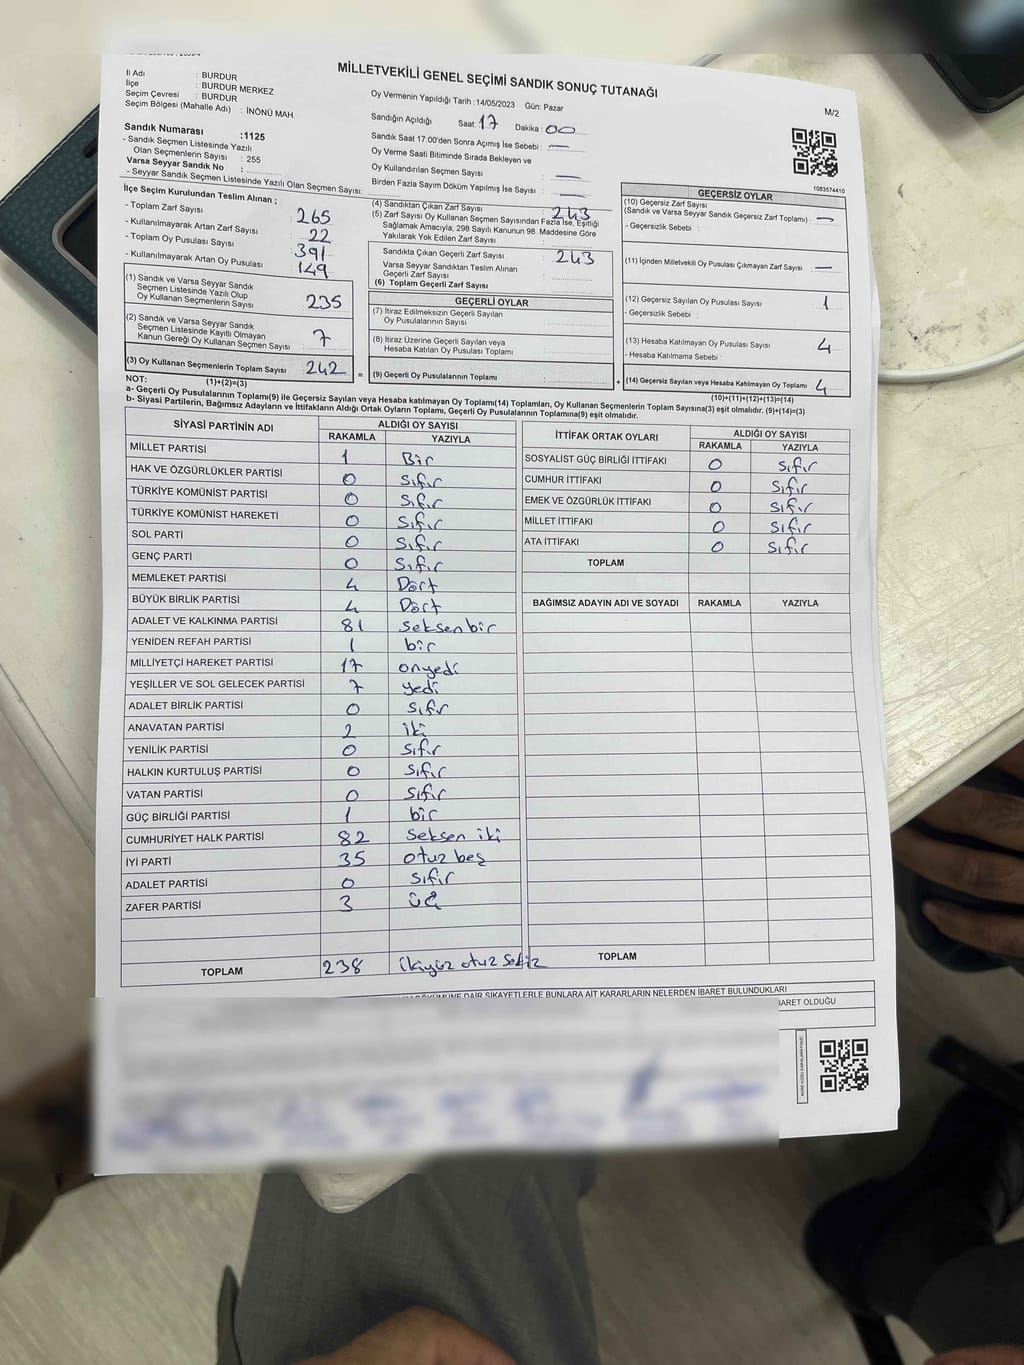 MİLLETVEKİLİ GENEL SEÇİMİ SANDIK SONUÇ TUTANAĞI
M/2
İl Adı : BURDUR
İlçe : BURDUR MERKEZ
Seçim Çevresi : BURDUR
Seçim Bölgesi (Mahalle Adı) : İNÖNÜ MAH.
Sandık Numarası :1125
- Sandık Seçmen Listesinde Yazılı
Olan Seçmenlerin Sayısı : 255
Varsa Seyyar Sandık No :
- Seyyar Sandık Seçmen Listesinde Yazılı Olan Seçmen Sayısı:
Oy Vermenin Yapıldığı Tarih :14/05/2023 Gün: Pazar
Sandığın Açıldığı Saat: 17 Dakika : 00
Sandık Saat 17:00'den Sonra Açılmış İse Sebebi : —
Oy Verme Saati Bitiminde Sırada Bekleyen ve
Oy Kullandırılan Seçmen Sayısı : —
Birden Fazla Sayım Döküm Yapılmış İse Sayısı : —
1083574410
İlçe Seçim Kurulundan Teslim Alınan ;
- Toplam Zarf Sayısı : 265
- Kullanılmayarak Artan Zarf Sayısı : 22
- Toplam Oy Pusulası Sayısı : 391
- Kullanılmayarak Artan Oy Pusulası : 149
(1) Sandık ve Varsa Seyyar Sandık
Seçmen Listesinde Yazılı Olup
Oy Kullanan Seçmenlerin Sayısı : 235
(2) Sandık ve Varsa Seyyar Sandık
Seçmen Listesinde Kayıtlı Olmayan
Kanun Gereği Oy Kullanan Seçmen Sayısı : 7
(3) Oy Kullanan Seçmenlerin Toplam Sayısı : 242
(4) Sandıktan Çıkan Zarf Sayısı : 243
(5) Zarf Sayısı Oy Kullanan Seçmen Sayısından Fazla İse, Eşitliği
Sağlamak Amacıyla, 298 Sayılı Kanunun 98. Maddesine Göre
Yakılarak Yok Edilen Zarf Sayısı :
Sandıkta Çıkan Geçerli Zarf Sayısı : 243
Varsa Seyyar Sandıktan Teslim Alınan
Geçerli Zarf Sayısı :
(6) Toplam Geçerli Zarf Sayısı :
GEÇERLİ OYLAR
(7) İtiraz Edilmeksizin Geçerli Sayılan
Oy Pusulalarının Sayısı :
(8) İtiraz Üzerine Geçerli Sayılan veya
Hesaba Katılan Oy Pusulası Toplamı :
= (9) Geçerli Oy Pusulalarının Toplamı :
GEÇERSİZ OYLAR
(10) Geçersiz Zarf Sayısı
(Sandık ve Varsa Seyyar Sandık Geçersiz Zarf Toplamı) : —
- Geçersizlik Sebebi :
(11) İçinden Milletvekili Oy Pusulası Çıkmayan Zarf Sayısı : —
(12) Geçersiz Sayılan Oy Pusulası Sayısı : 1
- Geçersizlik Sebebi :
(13) Hesaba Katılmayan Oy Pusulası Sayısı : 4
- Hesaba Katılmama Sebebi :
+ (14) Geçersiz Sayılan veya Hesaba Katılmayan Oy Toplamı : 4
NOT: (1)+(2)=(3)
(10)+(11)+(12)+(13)=(14)
a- Geçerli Oy Pusulalarının Toplamı(9) ile Geçersiz Sayılan veya Hesaba katılmayan Oy Toplamı(14) Toplamları, Oy Kullanan Seçmenlerin Toplam Sayısına(3) eşit olmalıdır. (9)+(14)=(3)
b- Siyasi Partilerin, Bağımsız Adayların ve İttifakların Aldığı Ortak Oyların Toplamı, Geçerli Oy Pusulalarının Toplamına(9) eşit olmalıdır.
SİYASİ PARTİNİN ADI ALDIĞI OY SAYISI
RAKAMLA YAZIYLA
MİLLET PARTİSİ 1 Bir
HAK VE ÖZGÜRLÜKLER PARTİSİ 0 Sıfır
TÜRKİYE KOMÜNİST PARTİSİ 0 Sıfır
TÜRKİYE KOMÜNİST HAREKETİ 0 Sıfır
SOL PARTİ 0 Sıfır
GENÇ PARTİ 0 Sıfır
MEMLEKET PARTİSİ 4 Dört
BÜYÜK BİRLİK PARTİSİ 4 Dört
ADALET VE KALKINMA PARTİSİ 81 Seksen bir
YENİDEN REFAH PARTİSİ 1 bir
MİLLİYETÇİ HAREKET PARTİSİ 17 onyedi
YEŞİLLER VE SOL GELECEK PARTİSİ 7 yedi
ADALET BİRLİK PARTİSİ 0 Sıfır
ANAVATAN PARTİSİ 2 iki
YENİLİK PARTİSİ 0 Sıfır
HALKIN KURTULUŞ PARTİSİ 0 Sıfır
VATAN PARTİSİ 0 Sıfır
GÜÇ BİRLİĞİ PARTİSİ 1 bir
CUMHURİYET HALK PARTİSİ 82 Seksen iki
İYİ PARTİ 35 otuz beş
ADALET PARTİSİ 0 Sıfır
ZAFER PARTİSİ 3 üç
TOPLAM 238 ikiyüz otuz sekiz
İTTİFAK ORTAK OYLARI ALDIĞI OY SAYISI
RAKAMLA YAZIYLA
SOSYALİST GÜÇ BİRLİĞİ İTTİFAKI 0 Sıfır
CUMHUR İTTİFAKI 0 Sıfır
EMEK VE ÖZGÜRLÜK İTTİFAKI 0 Sıfır
MİLLET İTTİFAKI 0 Sıfır
ATA İTTİFAKI 0 Sıfır
TOPLAM
BAĞIMSIZ ADAYIN ADI VE SOYADI RAKAMLA YAZIYLA
TOPLAM
DAİR ŞİKAYETLERLE BUNLARA AİT KARARLARIN NELERDEN İBARET BULUNDUKLARI
OLDUĞU